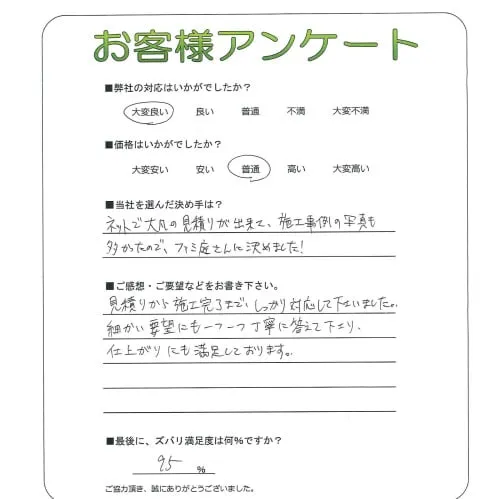 お客様アンケート
■弊社の対応はいかがでしたか?
大変良い 良い 普通 不満 大変不満
■価格はいかがでしたか?
大変安い 安い 普通 高い 大変高い
■当社を選んだ決め手は?
ネットで大凡の見積りが出来て、施工事例の写真も
多かったので、ファミ庭さんに決めました!
■ご感想・ご要望などをお書き下さい。
見積りから施工完了まで、しっかり対応して下さいました。
細かい要望にも一つ一つ丁寧に答えて下さり、
仕上がりにも満足しております。
■最後に、ズバリ満足度は何%ですか?
95 %
ご協力頂き、誠にありがとうございました。